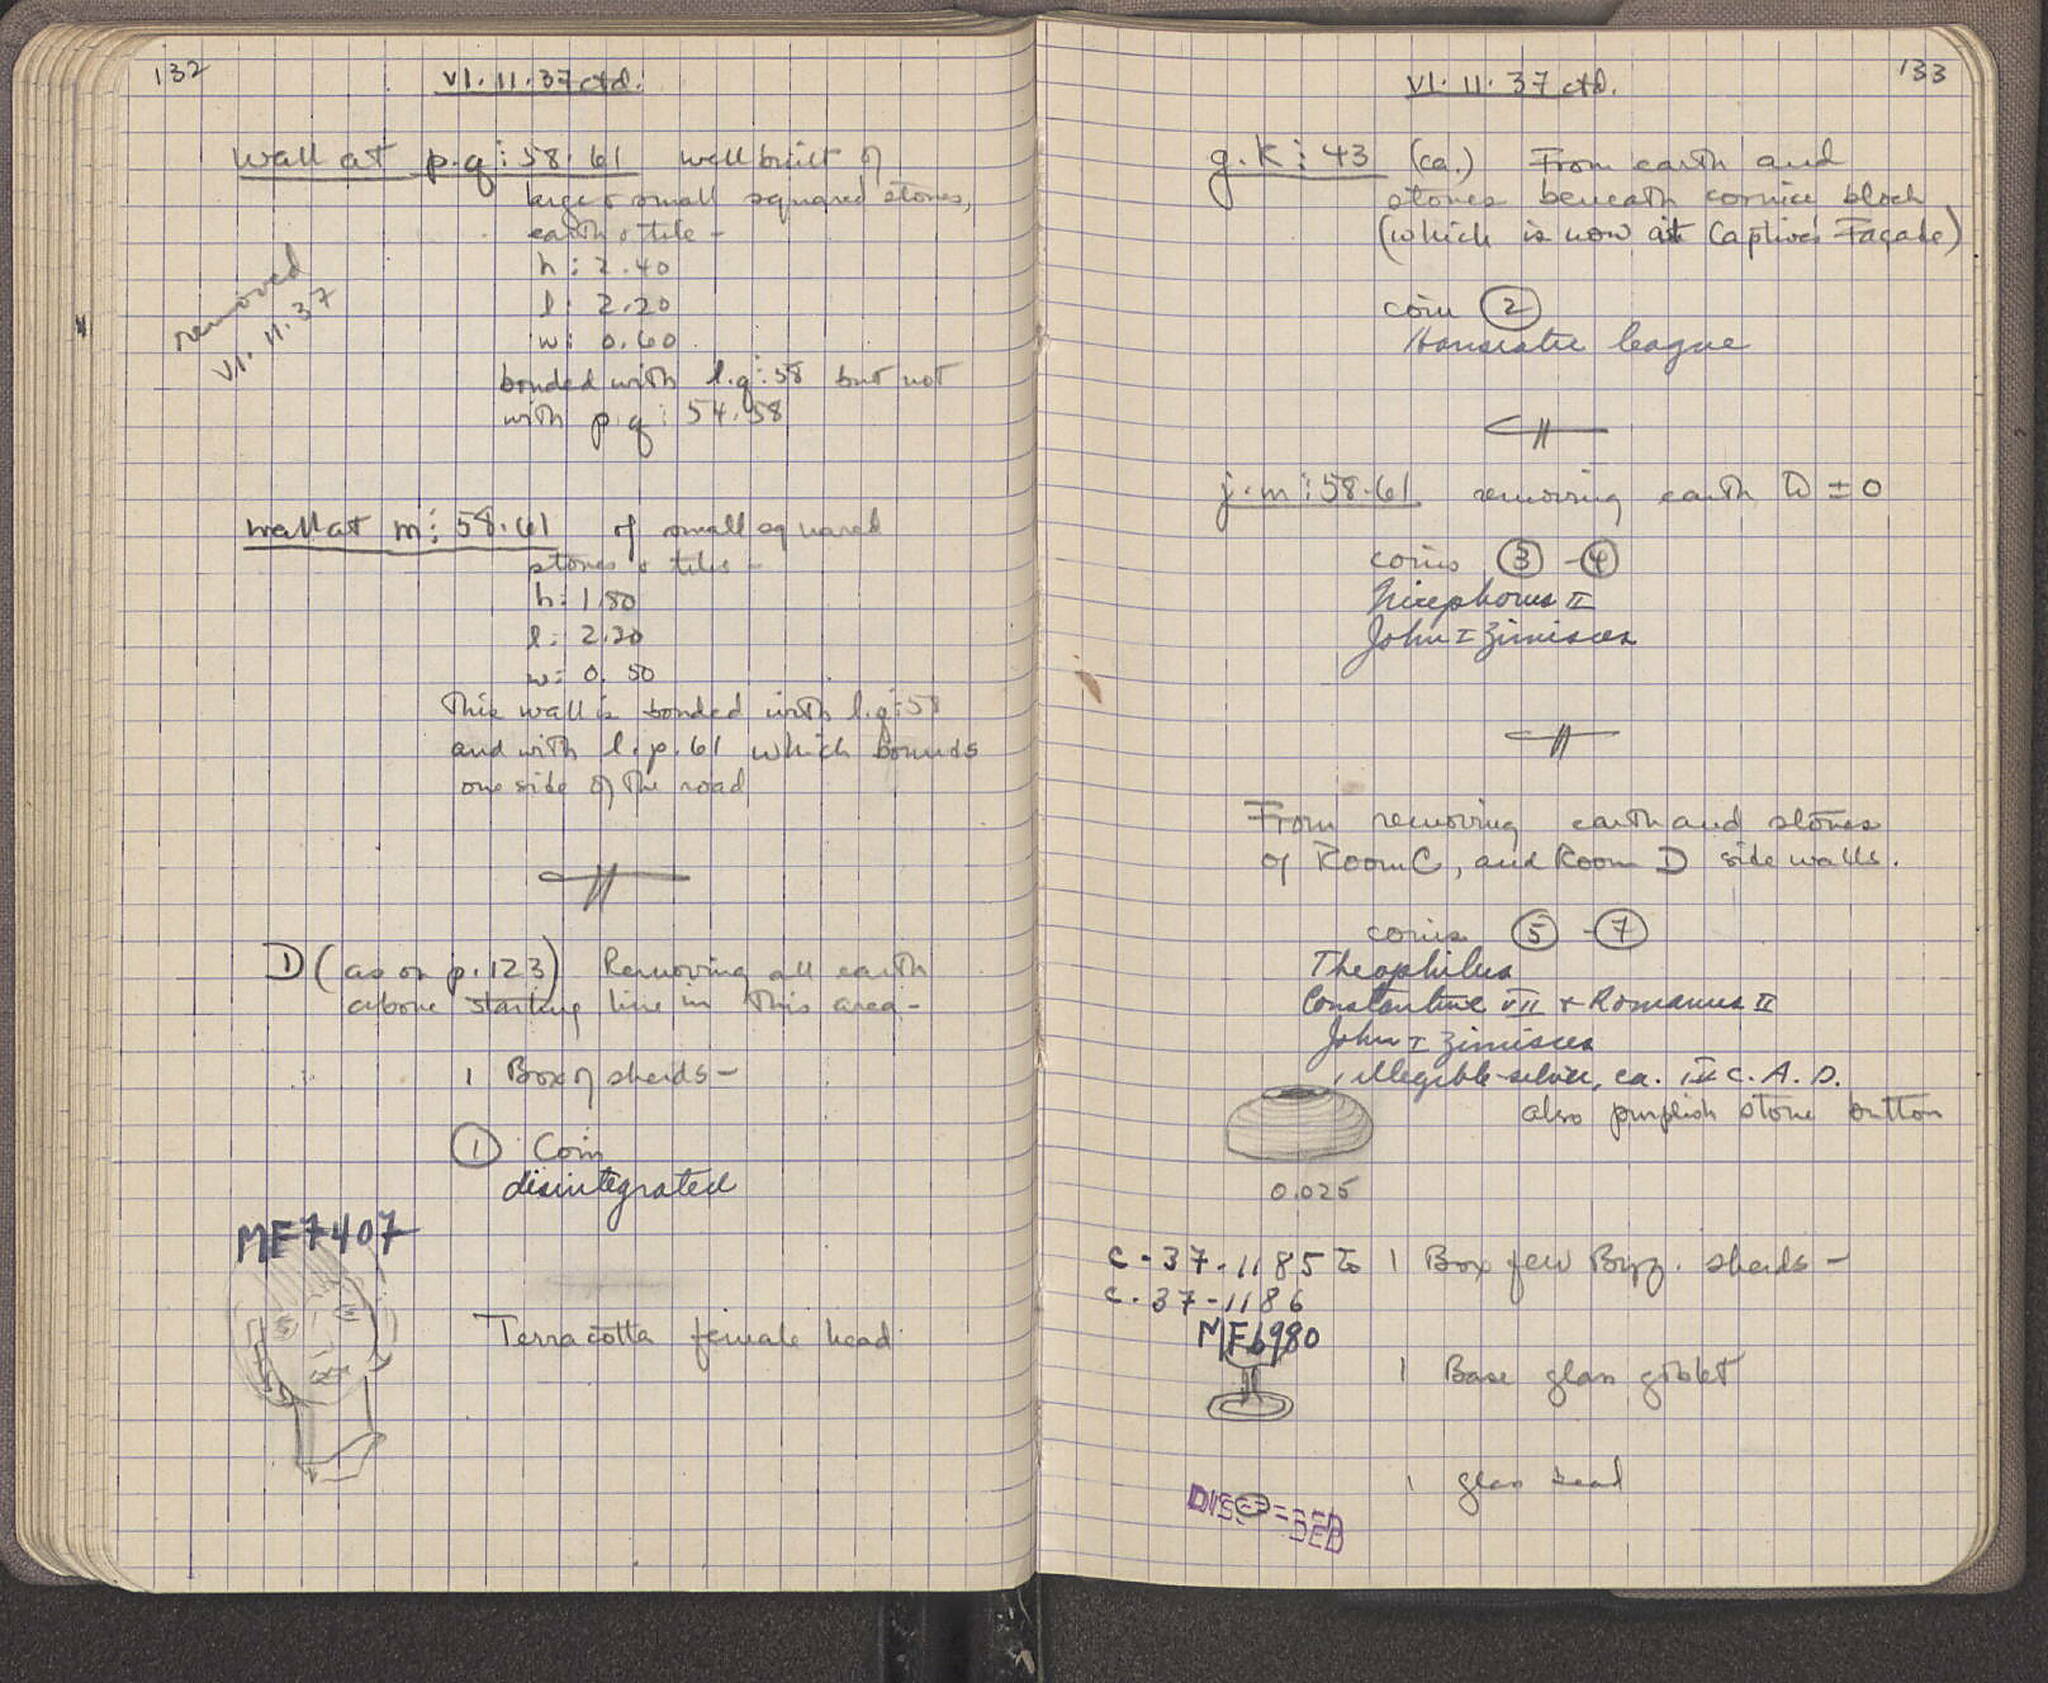 132
VI. 11. 37 ctd.
wall at p.q:58.61 well built of
large & small squared stones,
earth & tile -
h: 2.40
l: 2.20
w: 0.60
removed
VI. 11. 37
bonded with l.q:58 but not
with p.q: 54.58
wall at m:58.61 of small squared
stones & tiles -
h: 1.80
l: 2.20
w: 0.50
This wall is bonded with l.q:58
and with l.p.61 which bounds
one side of the road
D (as on p. 123) Removing all earth
above starting line in this area -
1 Box of sherds -
① Coin
disintegrated
MF7407
Terracotta female head
133
VI. 11. 37 ctd.
g.k:43 (ca.) From earth and
stones beneath cornice block
(which is now at Captives Façade)
coin ②
Hanseatic league
j.m:58.61 removing earth @ ±0
coins ③ - ④
Nicephorus II
John I Zimisces
From removing earth and stones
of Room C, and Room D side walls.
coins ⑤ - ⑦
Theophilus
Constantine VII & Romanus II
John I Zimisces
, illegible-silver, ca. IV c. A.D.
also purplish stone button
0.025
C-37-1185 to 1 Box few Byz. sherds -
C-37-1186
MF6980
1 Base glass goblet
1 glass bead